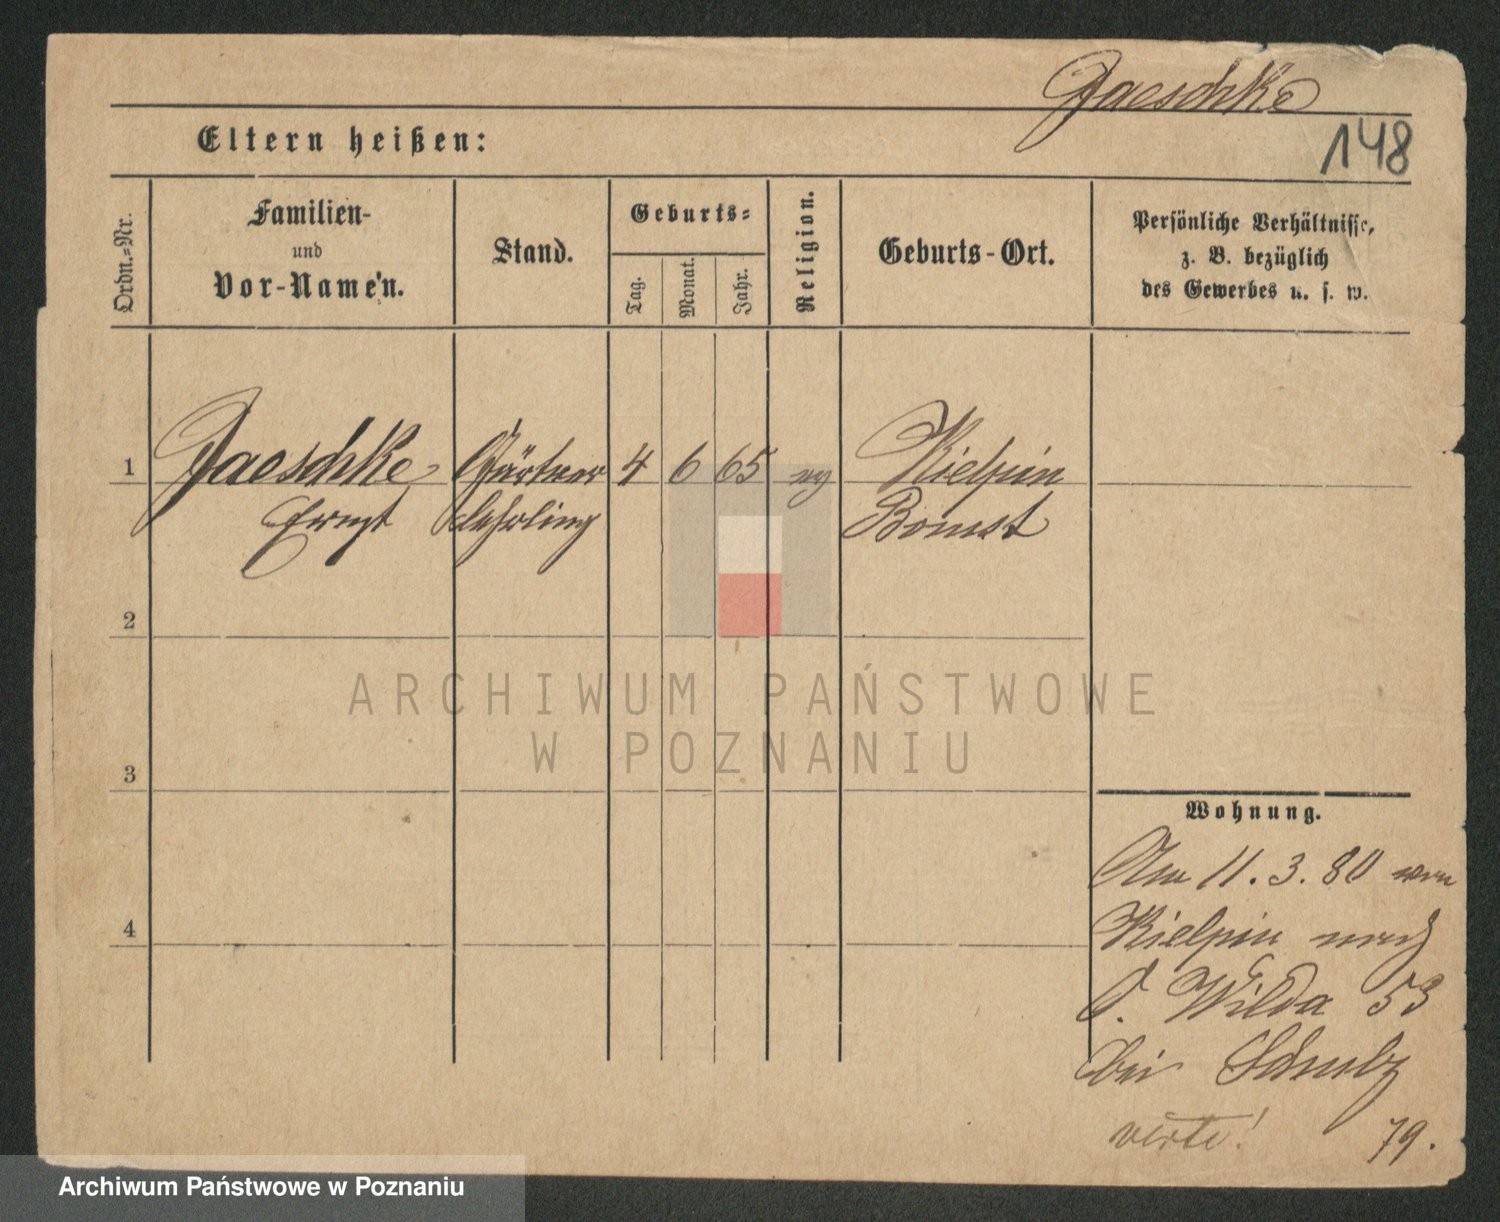 Jaeschke
148
Eltern heißen:
Ordn.-Nr.
Familien-
und
Vor-Namen.
Stand.
Geburts-
Tag.
Monat.
Jahr.
Religion.
Geburts-Ort.
Persönliche Verhältnisse,
z. B. bezüglich
des Gewerbes u. s. w.
1 Jaeschke Gärtner 4 6 65 ev Kielpin
Ernst lehrling Bomst
2
3
4
Wohnung.
Am 11. 3. 80 von
Kielpin nach
O. Wilda 53
bei Schulz
verte! 79.
ARCHIWUM PAŃSTWOWE
W POZNANIU
Archiwum Państwowe w Poznaniu